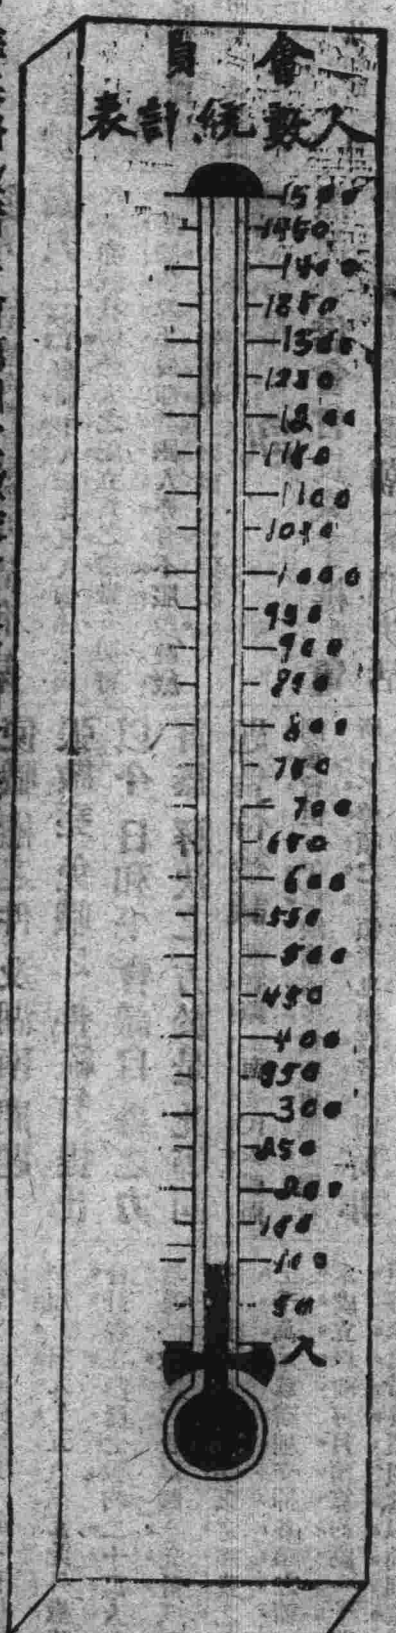 會員
人數統計表
1500
1450
1400
1350
1300
1250
1200
1150
1100
1050
1000
950
900
850
800
750
700
650
600
550
500
450
400
350
300
250
200
150
100
50
人